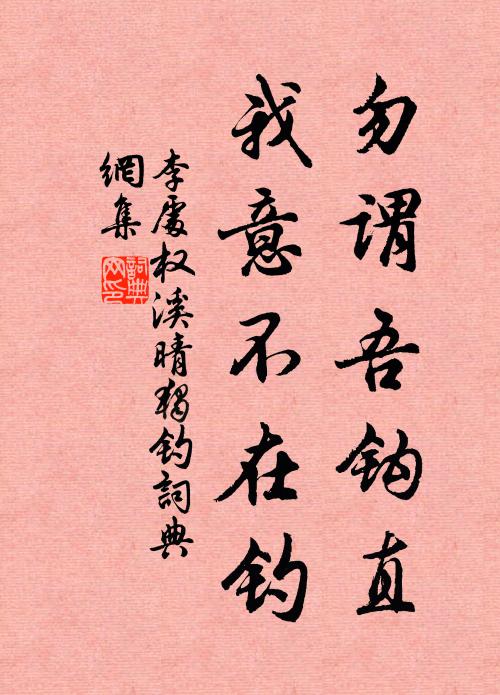 勿谓吾钩直
我意不在钓
李处权溪晴独钓词典
網集
詞典網印